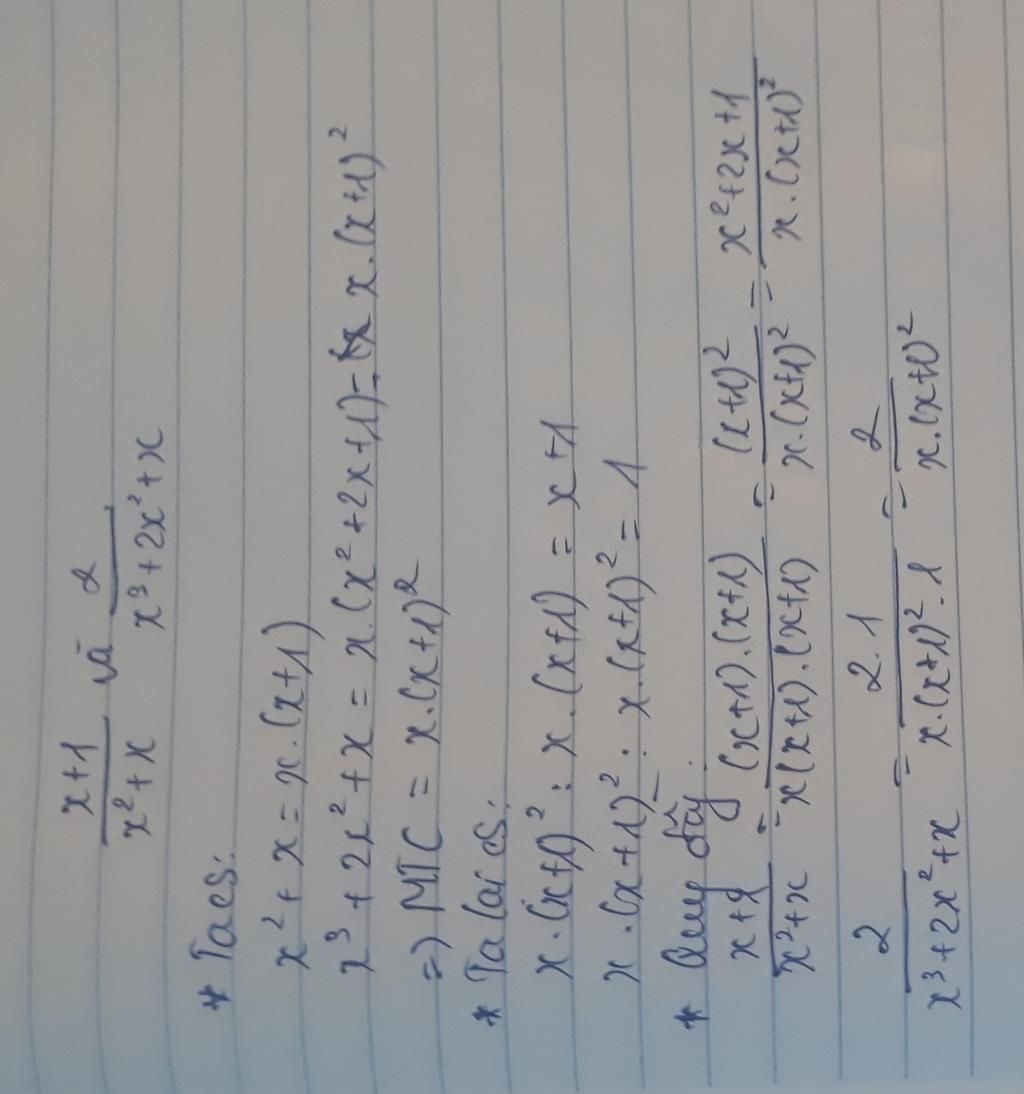 x+1/x²+x và 2/x³+2x²+x
* Ta có:
x² + x = x.(x+1)
x³ + 2x² + x = x.(x²+2x+1) = x.(x+1)²
=> MTC = x.(x+1)²
* Ta lại có:
x.(x+1)² : x.(x+1) = x+1
x.(x+1)² : x.(x+1)² = 1
* Quy đồng:
x+1/x²+x = (x+1).(x+1)/x(x+1).(x+1) = (x+1)²/x.(x+1)² = x²+2x+1/x.(x+1)²
2/x³+2x²+x = 2.1/x.(x+1)².1 = 2/x.(x+1)²